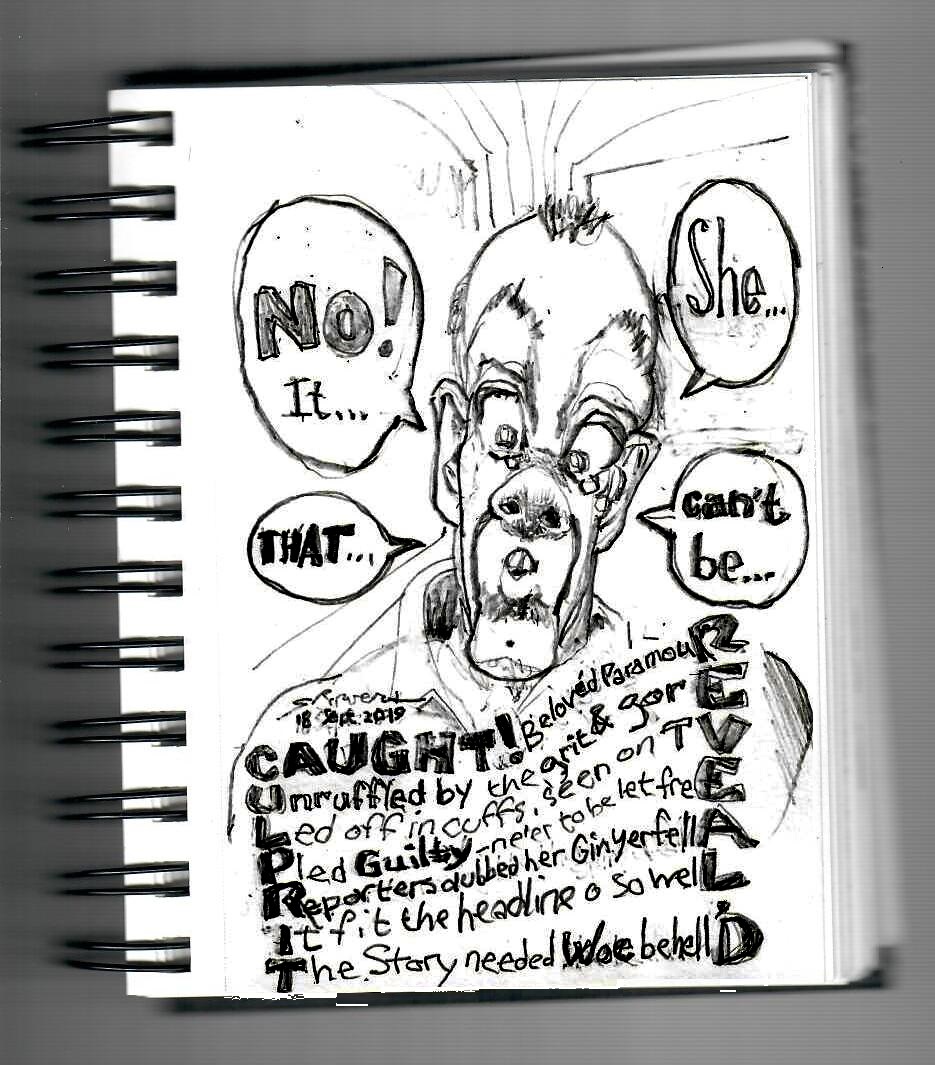 NO!
It...
She...
THAT...
can't
be...
18 Sept 2019
CAUGHT! Belovéd ParamouR
Unruffled by the grit & gorE
Led off in cuffs, seen on TV
Pled Guilty – ne'er to be let freE
Reporters dubbed her GinyerfellA
It fit the headline o so welL
The Story needed Woe behell'D